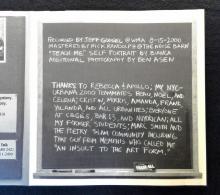 RECORDED BY JEFF GROSSEL @ WMA 8-15-2000
MASTERED BY MICK RANDOLPH @ THE NOISE BARN
"TEACH ME" SELF PORTRAIT BY BUNKA
ADDITIONAL PHOTOGRAPHY BY BEN ASEN
THANKS TO REBECCA & APOLLO; MY NYC-
URBANA 2000 TEAMMATES BEAU, NOEL, AND
CELENA; CRISTIN, MORRIS, AMANDA, FRANK
YOLANDA AND ALL URBANITES EVERYWHERE
AT CAGES, BAR 13, AND NUYORICAN; ALL
MY FORMER STUDENTS; MARC SMITH AND
THE POETRY SLAM COMMUNITY INCLUDING
THAT GUY FROM MEMPHIS WHO CALLED ME
"AN INSULT TO THE ART FORM."
Talk